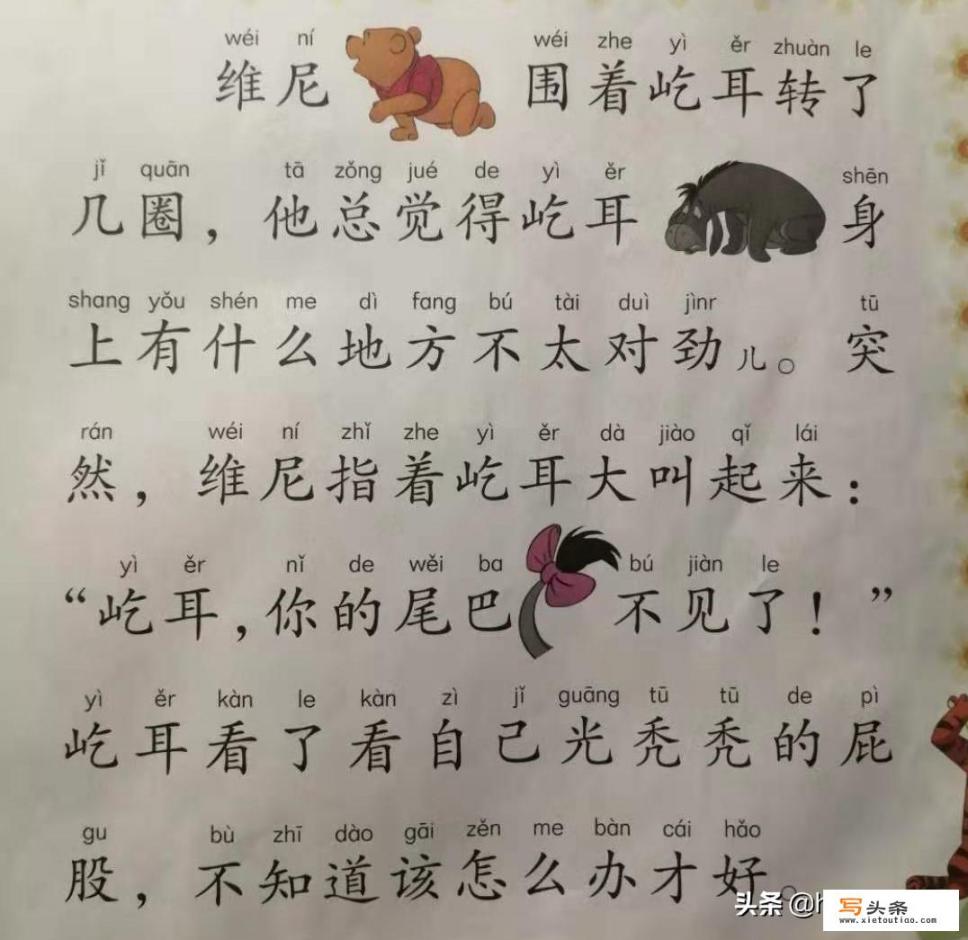 wéi ní wéi zhe yì ěr zhuàn le
维尼 围着屹耳转了
jǐ quān tā zǒng jué de yì ěr shēn
几圈，他总觉得屹耳 身
shang yǒu shén me dì fang bú tài duì jìnr tū
上有什么地方不太对劲儿。突
rán wéi ní zhǐ zhe yì ěr dà jiào qǐ lái
然，维尼指着屹耳大叫起来：
yì ěr nǐ de wěi ba bú jiàn le
“屹耳，你的尾巴 不见了！”
yì ěr kàn le kàn zì jǐ guāng tū tū de pì
屹耳看了看自己光秃秃的屁
gu bù zhī dào gāi zěn me bàn cái hǎo
股，不知道该怎么办才好。
头条 @
写头条
www.xietoutiao.com